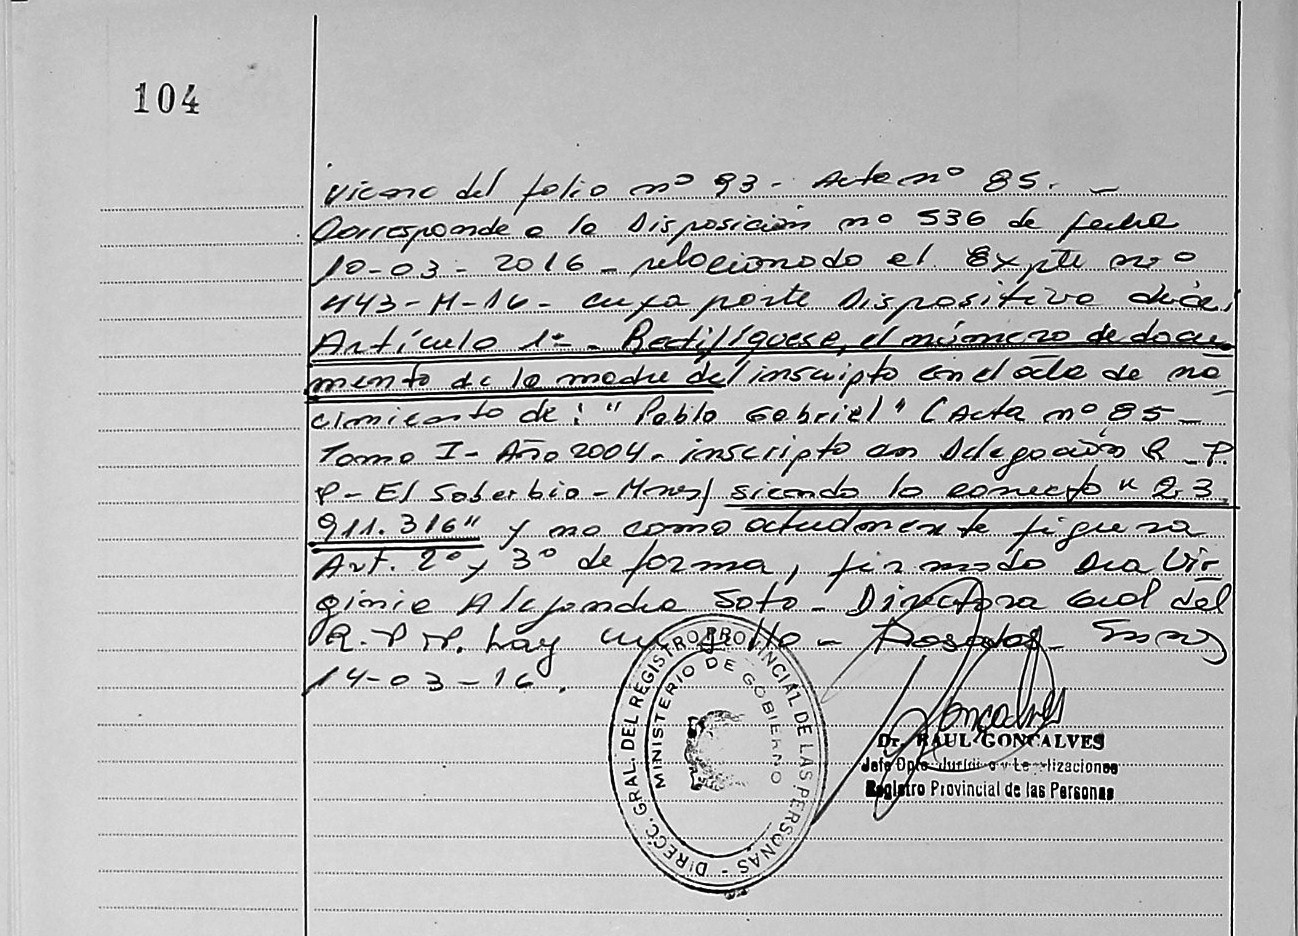 104
Viene del folio nº 93 - Acta nº 85. -
Corresponde a la Disposición nº 536 de fecha
10-03-2016 - relacionado el Expte nº
443-M-16 - cuya parte Dispositiva dice:
Artículo 1º - Rectifíquese, el número de docu-
mento de la madre del inscripto en el acta de na-
cimiento de: "Pablo Gabriel" (Acta nº 85 -
Tomo I - Año 2004 - inscripto en Delegación R. P.
P - El Soberbio - Mnes) siendo lo correcto "23.
911.316" y no como actualmente figura
Art. 2º y 3º de forma, firmado Dra Vir-
ginia Alejandra Soto - Directora Gral del
R.P.P. hay un sello - Posadas - Mnes
14-03-16.
DIRECC. GRAL. DEL REGISTRO PROVINCIAL DE LAS PERSONAS -
MINISTERIO DE GOBIERNO
Goncalves
Dr. RAUL GONCALVES
Jefe Dpto. Jurídico y Legalizaciones
Registro Provincial de las Personas